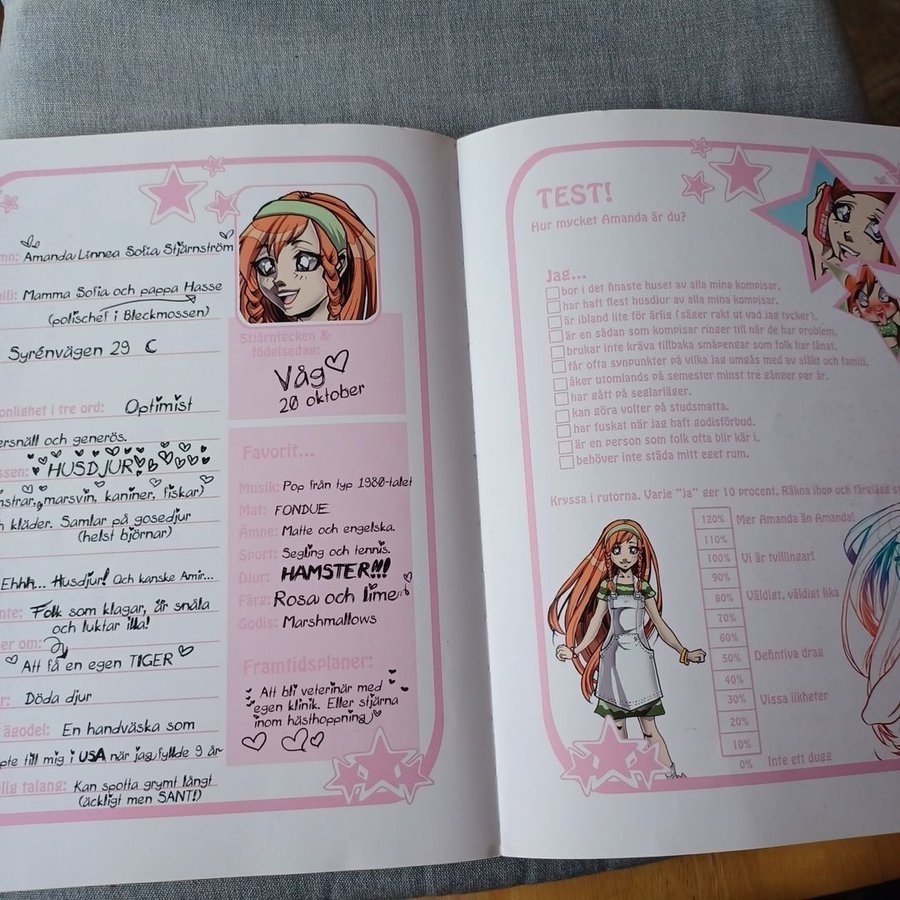 mn: Amanda Linnea Sofia Stjärnström
ilj: Mamma Sofia och pappa Hasse
(polischef i Bleckmossen)
Syrénvägen 29 C
onlighet i tre ord: Optimist
ersnäll och generös.
ssen: HUSDJUR
nstrar, marsvin, kaniner, fiskar)
h kläder. Samlar på gosedjur
(helst björnar)
Ehhh... Husdjur! Och kanske Amir...
nte: Folk som klagar, är snåla
och luktar illa!
er om:
Att få en egen TIGER
r: Döda djur
ägodel: En handväska som
pte till mig i USA när jag fyllde 9 år
lig talang: Kan spotta grymt långt
(äckligt men SANT!)
Stjärntecken &
födelsedag:
Våg
20 oktober
Favorit...
Musik: Pop från typ 1980-talet
Mat: FONDUE
Ämne: Matte och engelska.
Sport: Segling och tennis.
Djur: HAMSTER!!!
Färg: Rosa och lime
Godis: Marshmallows
Framtidsplaner:
Att bli veterinär med
egen klinik. Eller stjärna
inom hästhoppning
TEST!
Hur mycket Amanda är du?
Jag...
bor i det finaste huset av alla mina kompisar.
har haft flest husdjur av alla mina kompisar.
är ibland lite för ärlig (säger rakt ut vad jag tycker).
är en sådan som kompisar ringer till när de har problem.
brukar inte kräva tillbaka småpengar som folk har lånat.
får ofta synpunkter på vilka jag umgås med av släkt och familj.
åker utomlands på semester minst tre gånger per år.
har gått på seglarläger.
kan göra volter på studsmatta.
har fuskat när jag haft godisförbud.
är en person som folk ofta blir kär i.
behöver inte städa mitt eget rum.
Kryssa i rutorna. Varje "ja" ger 10 procent. Räkna ihop och färglägg st
120% Mer Amanda än Amanda!
110%
100% Vi är tvillingar!
90%
80% Väldigt, väldigt lika
70%
60%
50% Defintiva drag
40%
30% Vissa likheter
20%
10%
0% Inte ett dugg